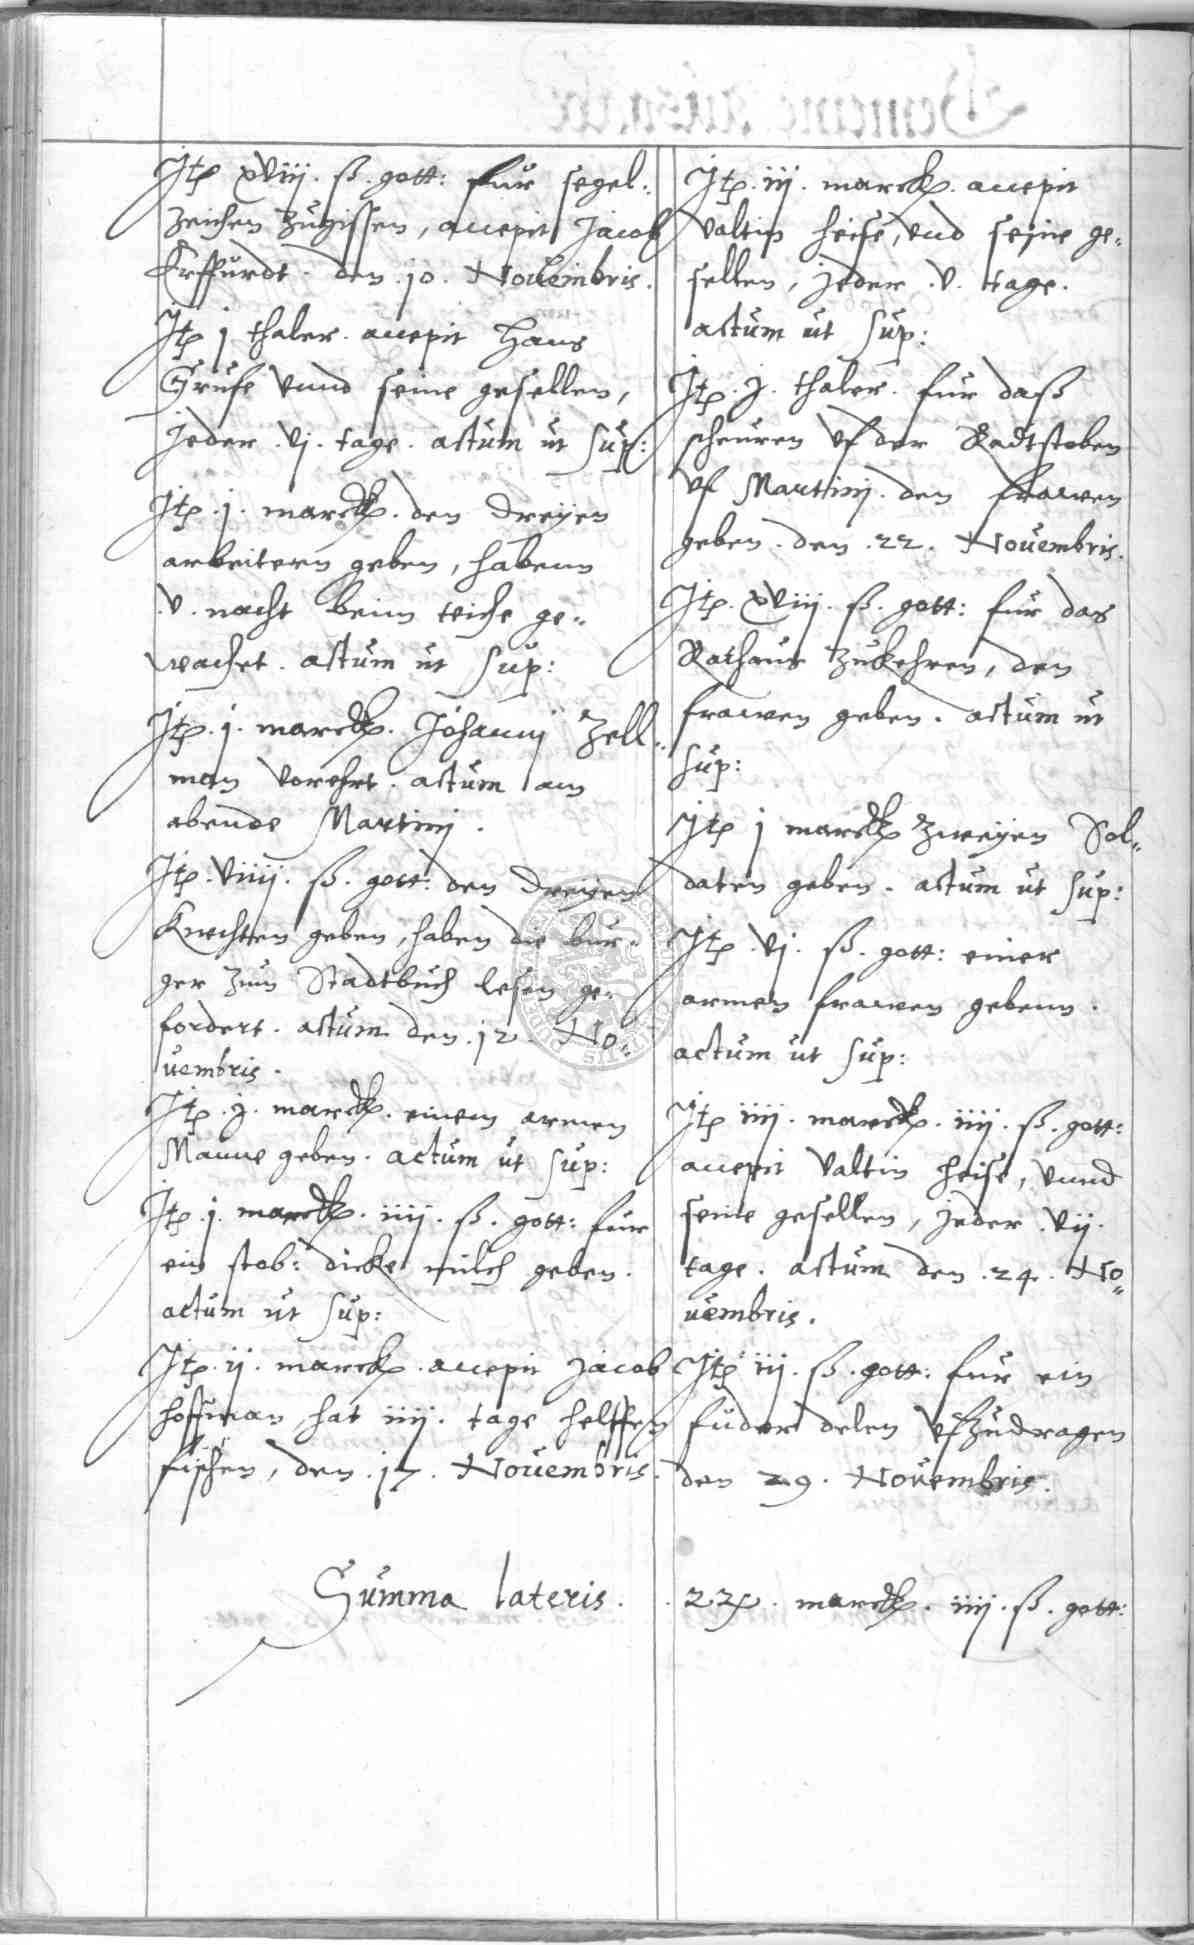 Itp xviij. ß. gott: fur segel:
zeichen zugissen, accepit Jacob
Erffurdt. den .10. Nouembris.
Itp j thaler. accepit Hans
Gruse vnnd seine gesellen,
Jeder .vj. tage. actum ut sup:
Itp .j. marck. den dreyen
arbeitern geben, habenn
.v. nacht beim teiche ge=
wachet. actum ut sup:
Itp .j. marck. Johannj Zell=
man vorehrt. actum am
abende Martinj.
Itp .viiij. ß. gott: den dreyen
Knechten geben, haben die bur=
ger zum Stadtbuch lesen ge=
fordert. actum den .12. No=
uembris.
Itp .j. marck. einem armen
Manne geben. actum ut sup:
Itp .j. marck. iiij. ß. gott: fur
ein stob: dicke milch geben.
actum ut sup:
Itp .ij. marck. accepit Jacob
hoffman hat iiij. tage helffen
fischen, den .17. Nouembris.
Itp .iij. marck. accepit
Valtin heise, vnd seine ge=
sellen, jeder .v. tage.
actum ut sup:
Itp .j. thaler. fur daß
scheuren vf der Radtstoben
vf Martinj. den frawen
geben. den .22. Nouembris.
Itp. xviij. ß. gott: fur das
Rathaus zukehren, den
frawen geben. actum ut
sup:
Itp j marck zweyen Sol=
daten geben. actum ut sup:
Itp .vj. ß. gott: einer
armen frawen gebenn.
actum ut sup:
Itp iiij. marck. iiij. ß. gott:
accepit Valtin heise, vnnd
seine gesellen, jeder .vij.
tage. actum den .24. No=
uembris.
Itp iij. ß. gott: fur ein
fuder delen vfzudragen
den 29. Nouembris.
Summa lateris. marck. iiij. ß. gott: